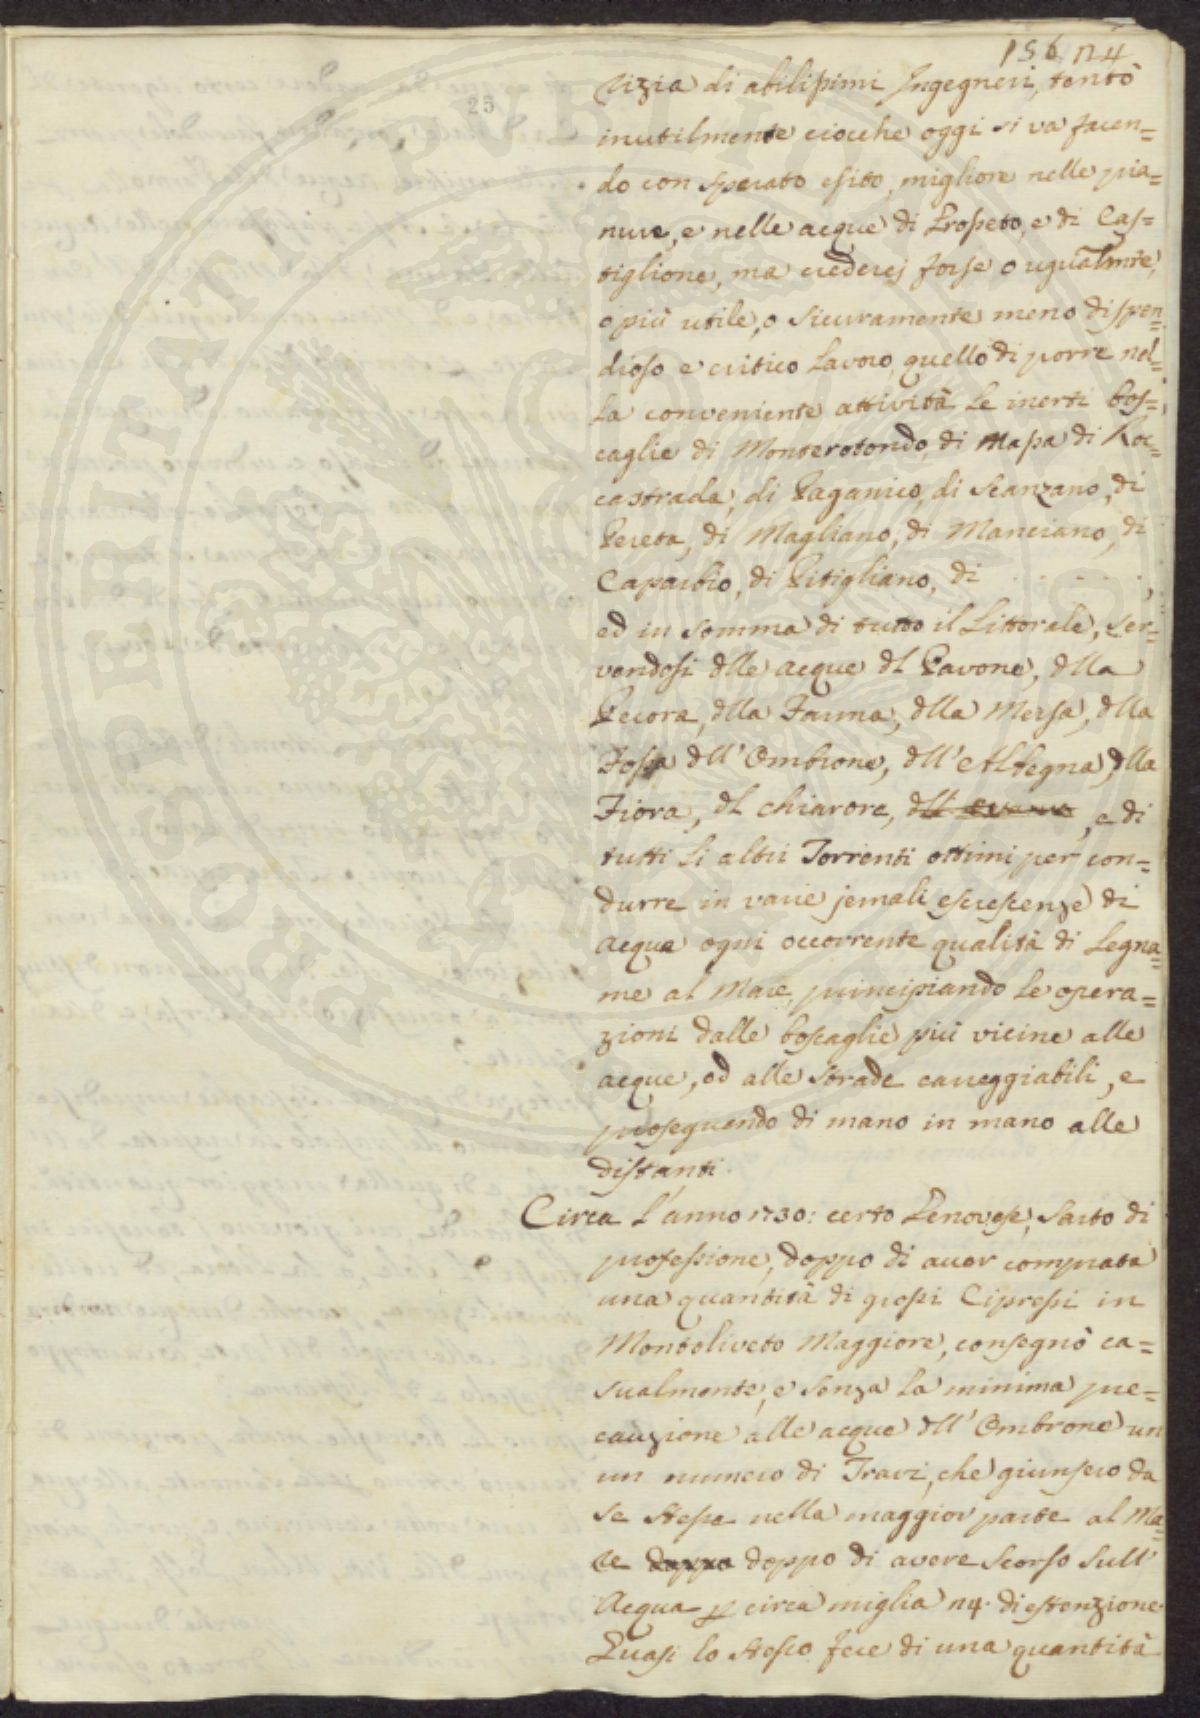 156 174
25
rizia di abilissimi Ingegneri, tentò
inutilmente ciocche oggi si va facen=
do con sperato esito migliore nelle pia=
nure, e nelle acque di Grosseto, e di Cas=
tiglione, ma crederej forse o ugualmte,
o più utile, o sicuramente meno dispen=
dioso e critico Lavoro, quello di porre nel=
la conveniente attività le inerti bos=
caglie di Monterotondo, di Massa di Roc=
castrada, di Paganico, di Scanzano, di
Pereta, di Magliano, di Manciano, di
Capalbio, di Pitigliano, di . . . . . . ,
ed in somma di tutto il Littorale, ser=
vendosi dlle acque dl Pavone, dlla
Pecora, dlla Fauna, dlla Mersa, dlla
Fossa dll' Ombrone, dll' Albegna, dlla
Fiora, dl Chiarore, dll' , e di
tutti li altri Torrenti ottimi per con=
durre in varie jemali escrescenze di
acqua ogni occorrente qualità di Legna=
me al Mare, principiando le opera=
zioni dalle boscaglie più vicine alle
acque, ed alle strade carreggiabili, e
proseguendo di mano in mano alle
distanti.
Circa l'anno 1730: certo Genovese, Sarto di
professione, doppo di aver comprata
una quantità di grossi Cipressi in
Montoliveto Maggiore, consegnò ca=
sualmente, e senza la minima pre=
cauzione alle acque dll' Ombrone un
un numero di Travi, che giunsero da
se stesse nella maggior parte al Ma=
re doppo doppo di avere scorso sull'
Acqua p circa miglia 74. di estenzione.
Quasi lo stesso fece di una quantità